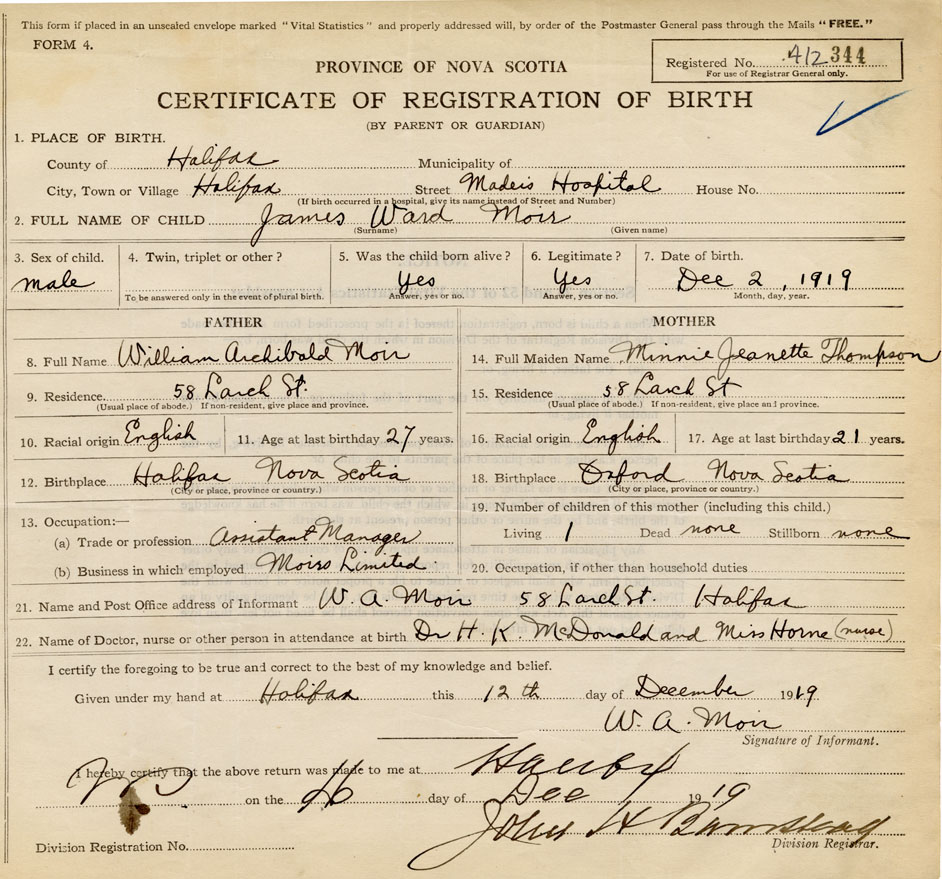 This form if placed in an unsealed envelope marked "Vital Statistics" and properly addressed will, by order of the Postmaster General pass through the Mails "FREE."
FORM 4.
Registered No. 412 344
For use of Registrar General only.
PROVINCE OF NOVA SCOTIA
CERTIFICATE OF REGISTRATION OF BIRTH
(BY PARENT OR GUARDIAN)
1. PLACE OF BIRTH.
County of Halifax Municipality of
City, Town or Village Halifax Street Madeis Hospital House No.
(If birth occurred in a hospital, give its name instead of Street and Number)
2. FULL NAME OF CHILD James Ward Moir
(Surname) (Given name)
3. Sex of child. 4. Twin, triplet or other? 5. Was the child born alive? 6. Legitimate? 7. Date of birth.
male Yes Yes Dec 2, 1919
To be answered only in the event of plural birth. Answer, yes or no. Answer, yes or no. Month, day, year.
FATHER MOTHER
8. Full Name William Archibald Moir 14. Full Maiden Name Minnie Jeanette Thompson
9. Residence 58 Larch St. 15. Residence 58 Larch St
(Usual place of abode.) If non-resident, give place and province. (Usual place of abode.) If non-resident, give place and province.
10. Racial origin English 11. Age at last birthday 27 years. 16. Racial origin English 17. Age at last birthday 21 years.
12. Birthplace Halifax Nova Scotia 18. Birthplace Oxford Nova Scotia
(City or place, province or country.) (City or place, province or country.)
13. Occupation:— 19. Number of children of this mother (including this child.)
(a) Trade or profession Assistant Manager Living 1 Dead none Stillborn none
(b) Business in which employed Moirs Limited 20. Occupation, if other than household duties
21. Name and Post Office address of Informant W. A. Moir 58 Larch St. Halifax
22. Name of Doctor, nurse or other person in attendance at birth Dr H. K. McDonald and Miss Horne (nurse)
I certify the foregoing to be true and correct to the best of my knowledge and belief.
Given under my hand at Halifax this 12th day of December 1919
W. A. Moir
Signature of Informant.
I hereby certify that the above return was made to me at
on the day of Dec 1919
John H
Division Registration No. Division Registrar.